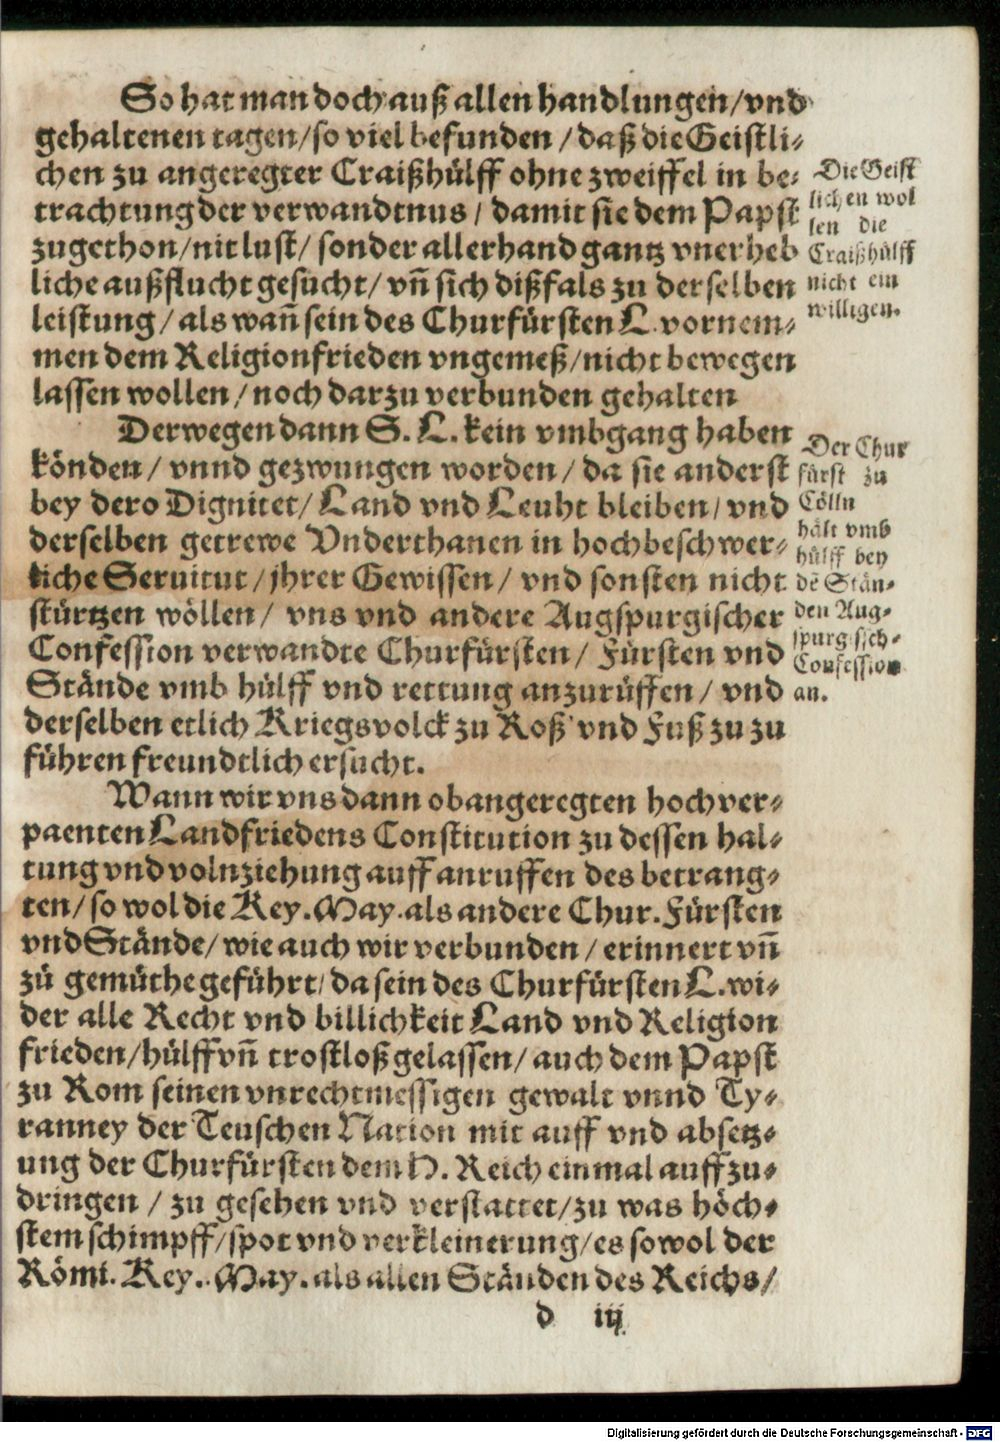 So hat man doch auß allen handlungen/vnd
gehaltenen tagen/so viel befunden/daß die Geistli-
chen zu angeregter Craißhülff ohne zweiffel in be-
trachtung der verwandtnus/damit sie dem Papst
zugethon/nit lust/sonder allerhand gantz vnerheb
liche außflucht gesucht/vñ sich dißfals zu derselben
leistung/als wañ sein des Churfürsten L. vornem-
men dem Religionfrieden vngemeß/nicht bewegen
lassen wollen/noch darzu verbunden gehalten
Die Geist
lichen wol
len die
Craißhülff
nicht ein
willigen.
Derwegen dann S. L. kein vmbgang haben
könden/vnnd gezwungen worden/da sie anderst
bey dero Dignitet/Land vnd Leuht bleiben/vnd
derselben getrewe Vnderthanen in hochbeschwer-
liche Seruitut/jhrer Gewissen/vnd sonsten nicht
stürtzen wöllen/vns vnd andere Augspurgischer
Confession verwandte Churfürsten/Fürsten vnd
Stände vmb hülff vnd rettung anzurüffen/vnd
derselben etlich Kriegsvolck zu Roß vnd Fuß zu zu
führen freundtlich ersucht.
Der Chur
fürst zu
Cölln
hält vmb
hülff bey
dẽ Stän-
den Aug-
spurgisch-
Confession
an.
Wann wir vns dann obangeregten hochver-
paenten Landfriedens Constitution zu dessen hal-
tung vnd volnziehung auff anruffen des betrang-
ten/so wol die Key. May. als andere Chur. Fürsten
vnd Stände/wie auch wir verbunden/erinnert vñ
zů gemüthe geführt/da sein des Churfürsten L. wi-
der alle Recht vnd billichkeit Land vnd Religion
frieden/hülff vñ trostloß gelassen/auch dem Papst
zu Rom seinen vnrechtmessigen gewalt vnnd Ty-
ranney der Teuschen Nation mit auff vnd absetz-
ung der Churfürsten dem H. Reich einmal auffzu-
dringen/zu gesehen vnd verstattet/zu was höch-
stem schimpff/spot vnd verkleinerung/es sowol der
Römi. Key. May. als allen Ständen des Reichs/
d iij
Digitalisierung gefördert durch die Deutsche Forschungsgemeinschaft - DFG